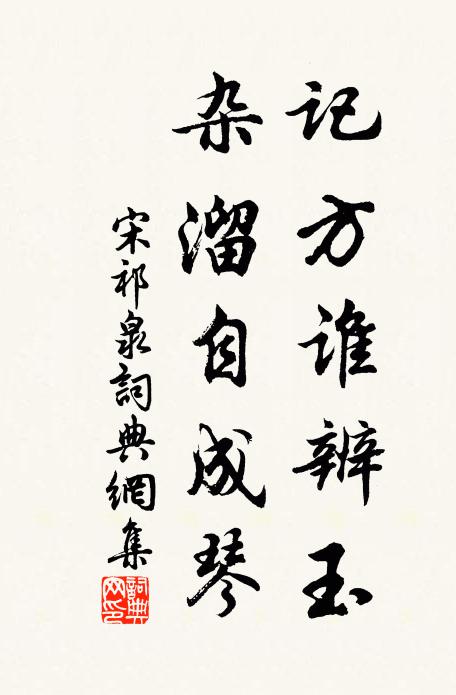 记方谁辨玉
杂溜自成琴
宋祁泉詞典網集
詞典网印